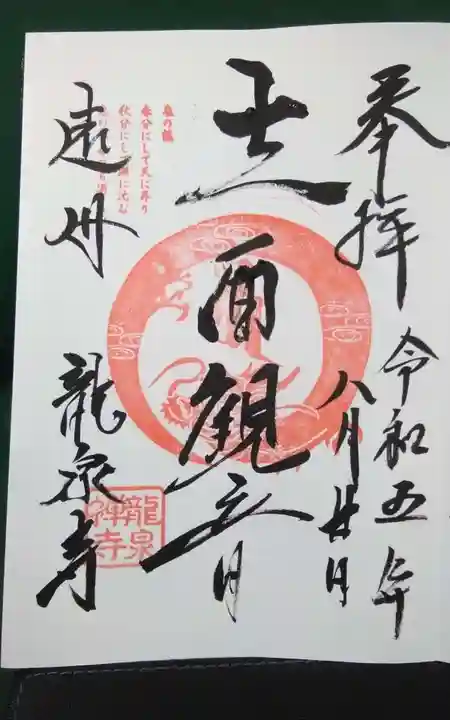 奉拝
令和五年
八月廿日
十一面観音
遠州
龍泉寺
龍の龍
春分にして天に昇り
秋分にし
に沈む
龍泉
禅寺